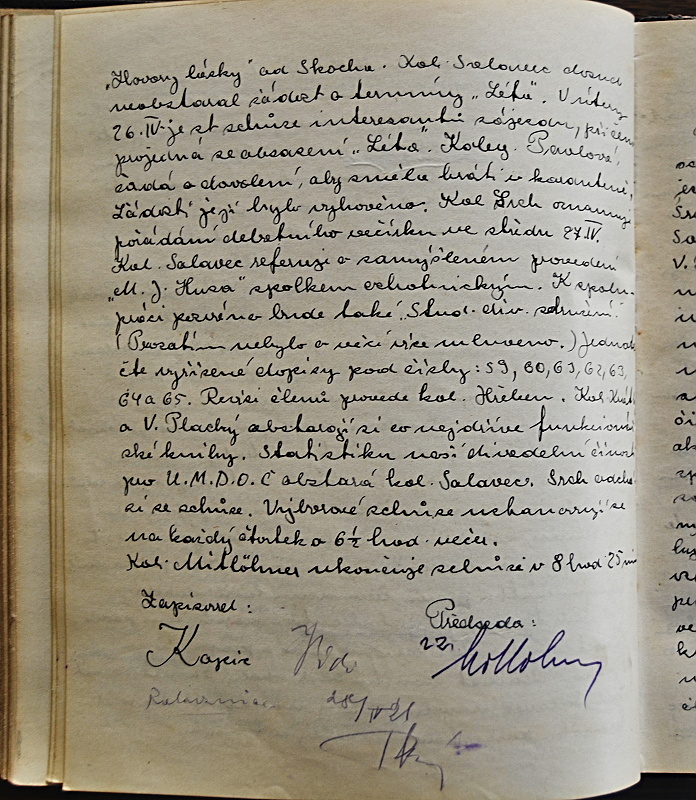 „Hovory lásky" od Skocha. Kol. Salavec dosud
neobstaral žádost o termíny „Léta". V úterý
26. IV. je st schůze interesantů zájezdu, při čem
projedná se obsazení „Léta". Koleg. Pavlová,
žádá o dovolení, aby směla hráti u
Žádosti její bylo vyhověno. Kol Srch oznamuje
pořádání debatního večírku ve středu 27. IV.
Kol. Salavec referuje o zamýšleném provedení
„M. J. Husa" spolkem ochotnickým. K spolu-
práci pozváno bude také „Stud. div. sdružení."
(Prozatím nebylo o věci více mluveno.) Jednatel
čte vyřízené dopisy pod čísly: 59, 60, 61, 62, 63,
64 a 65. Revisi členů provede kol. Hřeben. Kol.
a V. Plachý obstarají si co nejdříve funkcionář-
ské knihy. Statistiku naší divadelní činnosti
pro Ú.M.D.O.Č obstará kol. Salavec. Srch odchá-
zí se schůze. Výborové schůze ustanovují se
na každý čtvrtek o 6½ hod. večer.
Kol. Mitlöhner ukončuje schůzi v 8 hod 25 min
Zapisovatel: Předseda:
Kapic Mitlöhner
28/IV 21